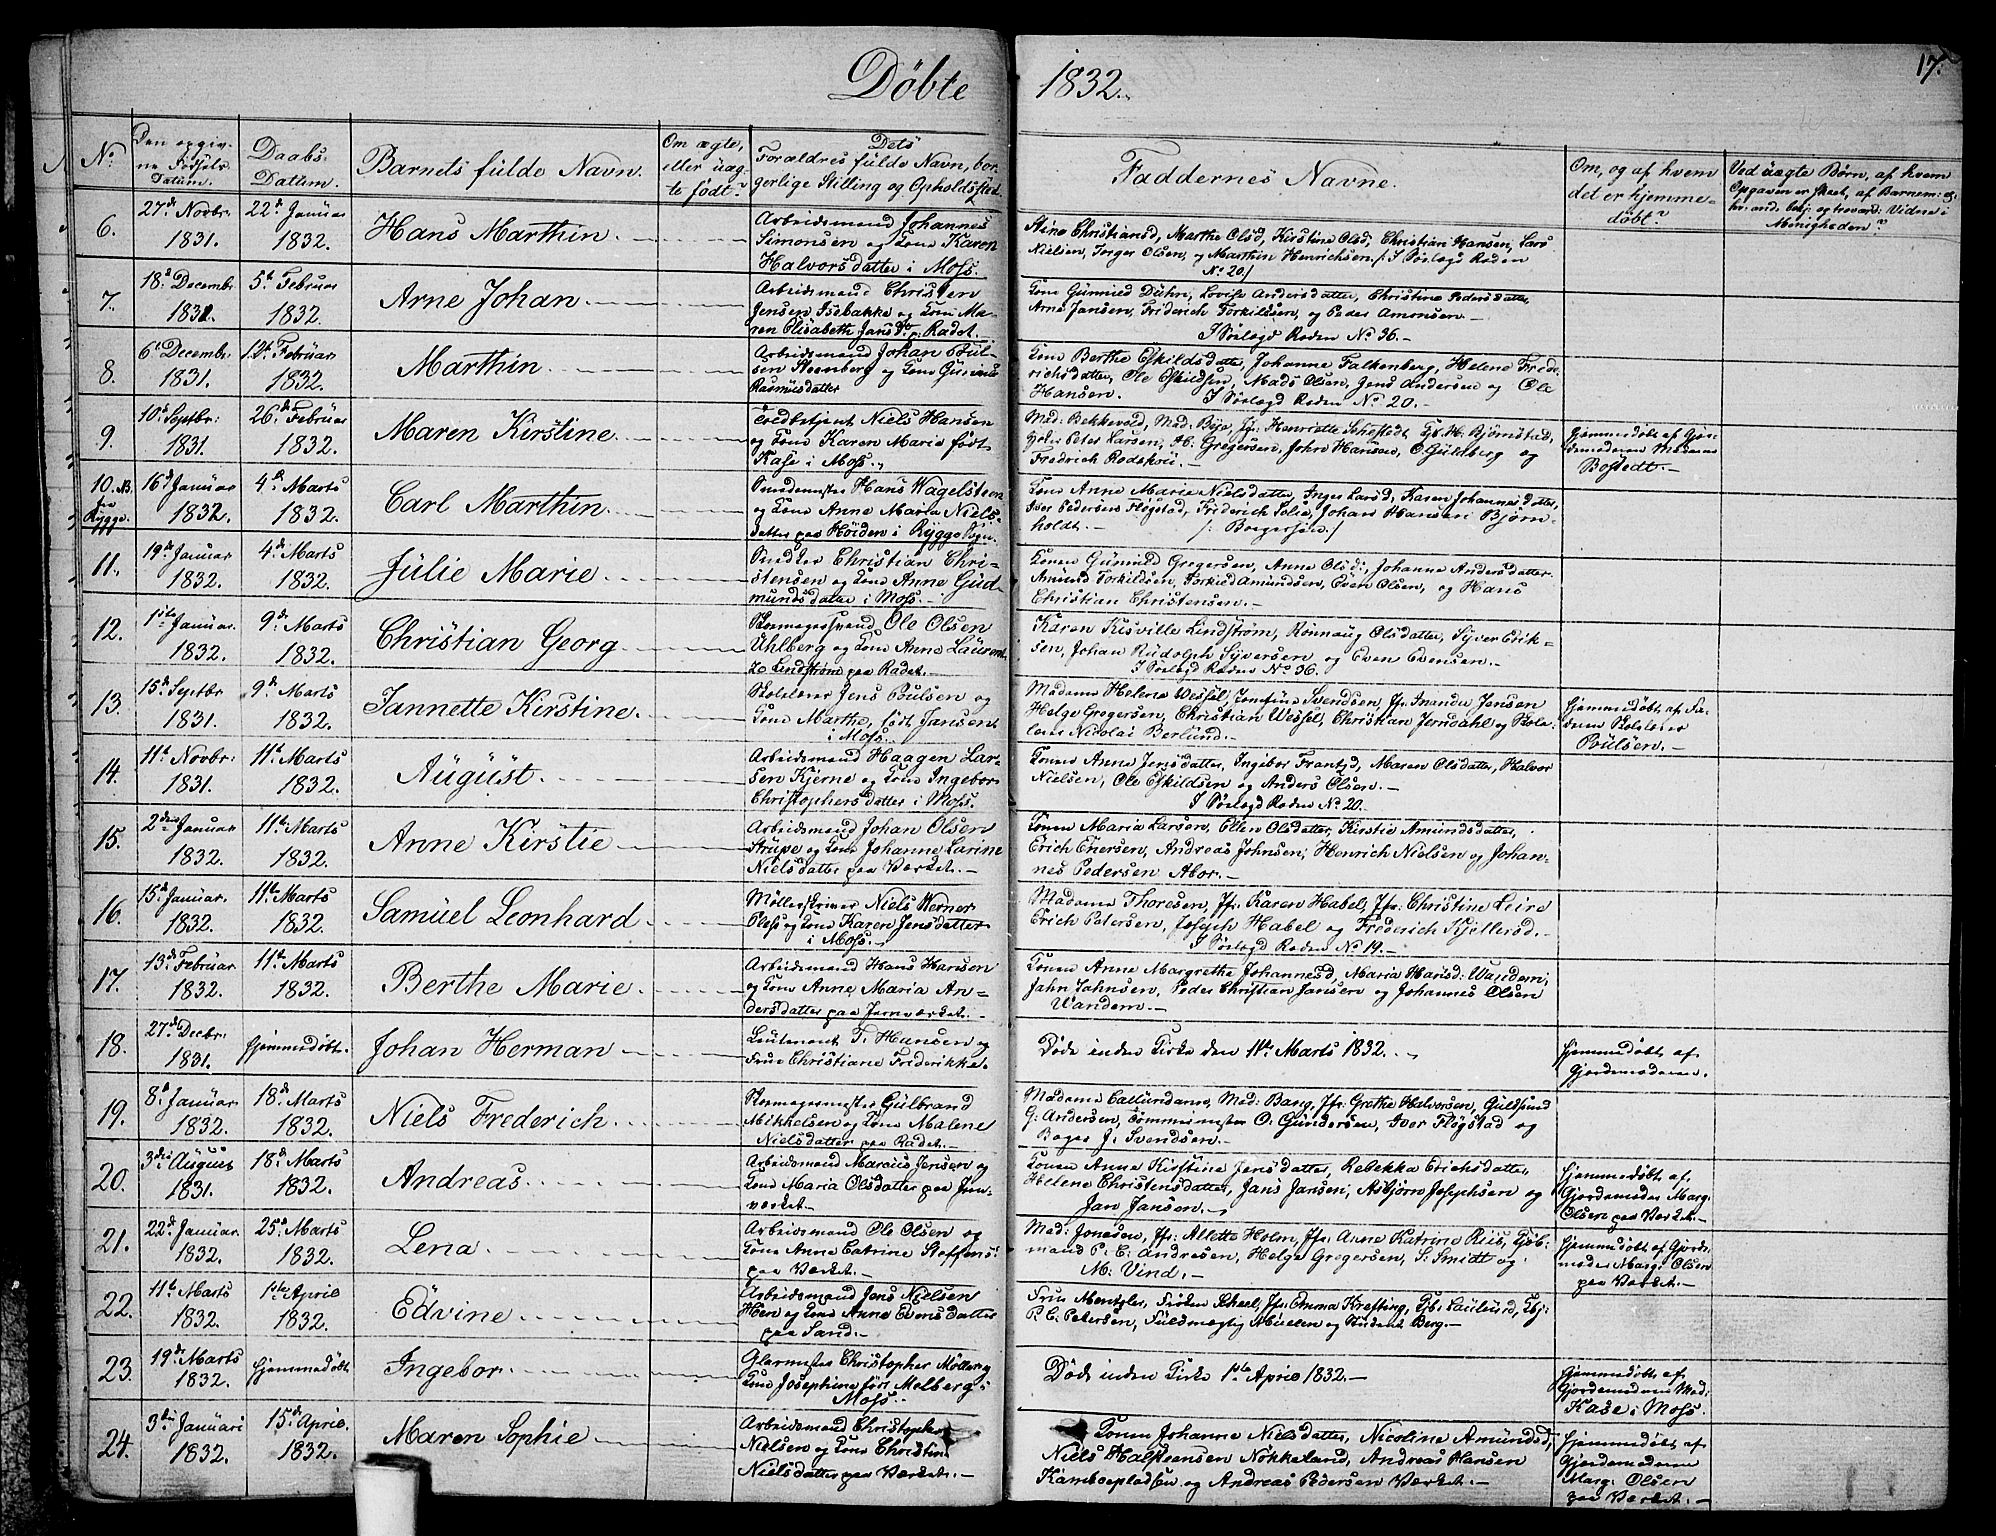 Döbte 1832.
17.
No.
Den opgiv-
ne Födsels
Datum.
Daabs-
Datum.
Barnets fulde Navn.
Om ægte,
eller uæg-
te födt?
Dets
Forældres fulde Navn, bor-
gerlige Stilling og Opholdssted.
Faddernes Navne.
Om, og af hvem
det er hjemme-
döbt?
Ved uægte Börn, af hvem
Opgaven er skeet, af Barnem: el:
Menigheden?
6.
27de Novbr.
1831.
22de Januar
1832.
Hans Marthin
Arbeidsmand Johannes
Simonsen og Kone Karen
Halvorsdatter i Moss.
Stine Christiansd, Marthe Olsd, Kirstine Olsd, Christian Hansen, Lars
Nielsen, Torger Olsen, og Marthin Henrichsen /: I Sörlagd Roden
No. 20./
7.
18de Decembr.
1831.
5te Februar
1832.
Arne Johan
Arbeidsmand Christen
Jensen Isebakke og Kone Ma-
ren Elisabeth Jansdr. p. Radet.
Kone Gunnild Duhn, Lovise Andersdatter, Christine Pedersdatter,
Arne Jansen, Friderich Torkildsen, og Peder Amonsen.
I Sörlagd Roden No. 36.
8.
6te Decembr.
1831.
12te Februar
1832.
Marthin
Arbeidsmand Johan Poul-
sen Steenberg og Kone
Rasmusdatter
Kone Berthe Eskildsdatter, Johanne Falkenberg, Helene Fride-
richsdatter, Ole Eskildsen, Mads Olsen, Jens Andersen og Ole
Hansen. I Sörlagd Roden No. 20.
9.
10de Septbr.
1831.
26de Februar
1832.
Maren Kirstine.
Toldbetjent Niels Hansen
og Kone Karen Marie födt
Kase i Moss.
Mad. Bekkevold, Mad. Bye, Jfr. Henriette Schestedt, Kjb. H. Björnstad,
Peter Larsen, H. Gregersen, John Hansen, O. Guldberg og
Fredrich Rodskou.
Hjemmedöbt af Gjor-
demoderen Madame
Bostedt.
10. NB.
fra
Rygge.
16de Januar
1832.
4de Marts
1832.
Carl Marthin.
Smedemester Hans Wagelsteen
og Kone Anne Maria Niels-
datter paa Höiden i Rygge Sogn.
Kone Anne Marie Nielsdatter, Inger Larsd, Karen Johannesdatter,
Iver Pedersen Flögstad, Friderich Solie, Johan Hansen Björn-
holdt. /: Borgersöen:/
11.
19de Januar
1832.
4de Marts
1832.
Julie Marie
Snedker Christian Chri-
stensen og Kone Anne Gud-
mundsdatter i Moss.
Konen Gunnild Gregersen, Anne Olsd, Johanne Andersdatter
Amund Torkildsen, Torkild Amundsen, Even Olsen, og Hans
Christian Christensen.
12.
1ste Januar.
1832.
9de Marts
1832.
Christian Georg
Skomagersvend Ole Olsen
Uhlberg og Kone Anne Laurent-
ze Lindström paa Radet.
Karen Kisville Lindström, Rönnaug Olsdatter, Syver Erik-
sen, Johan Rudolph Syversen og Even Evensen.
I Sörlagd Roden No. 36.
13.
15de Septbr
1831.
9de Marts
1832.
Jannette Kirstine.
Skolelærer Jens Poulsen og
Kone Marthe, födt Jansen
i Moss.
Madame Helene Wessel, Josefine Svendsen, Jfr. Jensen
Helge Gregersen, Christian Wessel, Christian Jerndahl og Skole-
lærer Nicolai Berlund.
Hjemmedöbt af Fa-
deren Skolelærer
Poulsen.
14.
11te Novbr:
1831.
11te Marts
1832.
August.
Arbeidsmand Haagen Lar-
sen Kjerne og Kone Ingebor
Christophersdatter i Moss.
Konen Anne Jensdatter, Ingebor Frantzd, Maren Olsdatter, Halvor
Nielsen, Ole Eskildsen og Anders Olsen.
I Sörlagd Roden No. 20.
15.
2den Januar
1832.
11te Marts
1832.
Anne Kirstie
Arbeidsmand Johan Olsen
Strupe og Kone Johanne Larine
Nielsdatter paa Værket.
Konen Maria Larsen, Ellen Olsdatter, Kirstie Amundsdatter,
Erich Enersen, Andreas Johnsen, Henrich Nielsen og Johan-
nes Pedersen Abor.
16.
15de Januar.
1832.
11te Marts
1832.
Samuel Leonhard
Möllerskriver Niels Werner
Ploss og Kone Karen Jensdatter
i Moss.
Madame Thoresen, Jfr. Karen Habel, Jfr: Christine Leire
Erich Petersen, Joseph Habel og Frederich Kjelleröd.
I Sörlagd Roden No. 19.
17.
13de Februar
1832.
11te Marts
1832.
Berthe Marie
Arbeidsmand Hans Hansen
og Kone Anne Maria An-
dersdatter paa Jernværket.
Konen Anne Margrethe Johannesd, Maria Hansd: Wandem,
Jahn Jahnsen, Peder Christian Jansen og Johannes Olsen
Vandem.
18.
27de Decbr:
1831.
Hjemmedöbt.
Johan Herman
Leutenant T. Hansen og
Frue Christiane Friderikke.
Döde inden Kirke den 11te Marts 1832.
Hjemmedöbt af
Gjordemoderen.
19.
8de Januar.
1832.
18de Marts
1832.
Niels Frederich.
Skomagermester Gulbrand
Mikkelsen og Kone Malene
Nielsdatter paa Radet.
Madame Callundann, Mad: Bang, Jfr: Grethe Halvorsen, Guldsmed
G: Andersen, O: Gundersen, Iver Flögstad og
Bager J. Svendsen.
20.
3die August
1831.
18de Marts
1832.
Andreas
Arbeidsmand Marcus Jensen og
Kone Maria Olsdatter paa Jern-
værket.
Konen Anne Kirstine Jensdatter, Rebekka Erichsdatter,
Helene Christensdatter, Jans Jansen, Asbjörn Josephsen og
Jan Jansen.
Hjemmedöbt af
Gjordemoder Marg.
Olsen paa Værket.
21.
22de Januar.
1832.
25de Marts
1832.
Lena
Arbeidsmand Ole Olsen og
Kone Anne Catrine Steffens:
paa Værket.
Mad: Jonsen, Jfr: Allette Holm, Jfr. Anne Katrine Reis, Kjöb-
mand P. E. Andresen, Helge Gregersen, S. Smidt og
M: Vind.
Hjemmedöbt af Gjorde-
moder Marg: Olsen
paa Værket.
22.
11te Marts
1832.
1ste April
1832.
Edvine
Arbeidsmand Jens Nielsen
Hven og Kone Anne Evensdatter
paa Sand.
Fru Mentzler, Fröken Scheel, Jfr. Emma Krefting, Kjb. Laulund, Kbj:
P. C. Petersen, Fuldmægtig Müelen og Student Berg.
23.
19de Marts
1832.
Hjemmedöbt
Ingebor.
Glarmester Christopher Möller og
Kone Josephine födt Melberg i
Moss.
Döde inden Kirke 1ste April 1832.
Hjemmedöbt af
Gjordemoderen Mad:
Kase i Moss.
24.
3die Januari
1832.
15de April.
1832.
Maren Sophie
Arbeidsmand Christopher
Nielsen og Kone Christine
Nielsdatter paa Værket.
Konen Johanne Nielsdatter, Nicoline Amundsd,
Niels Halsteensen Nökkeland, Andreas Hansen
Kamboepladsen og Andreas Pedersen Værket.
Hjemmedöbt af
Gjordemoderen
Marg: Olsen
paa Værket.